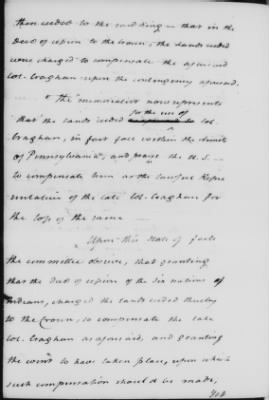 then ceded to the said King — that in the
deed of cession to the Crown, the lands ceded
were charged to compensate the aforesaid
Col. Croghan upon the contingency aforesaid.
The memorialist now represents
for the use of
that the lands ceded to Col.
Croghan, in fact face within the limits
of Pennsylvania, and prays the U.S. —
to compensate him as the lawful Repre
sentative of the late Col. Croghan for
the loss of the same —
Upon this state of facts
the committee observe, that granting
that the deed of cession of the six nations of
Indians, charged the lands ceded thereby
to the Crown, to compensate the late
Col. Croghan as aforesaid, and granting
the event to have taken place, upon which
such compensation should be made,